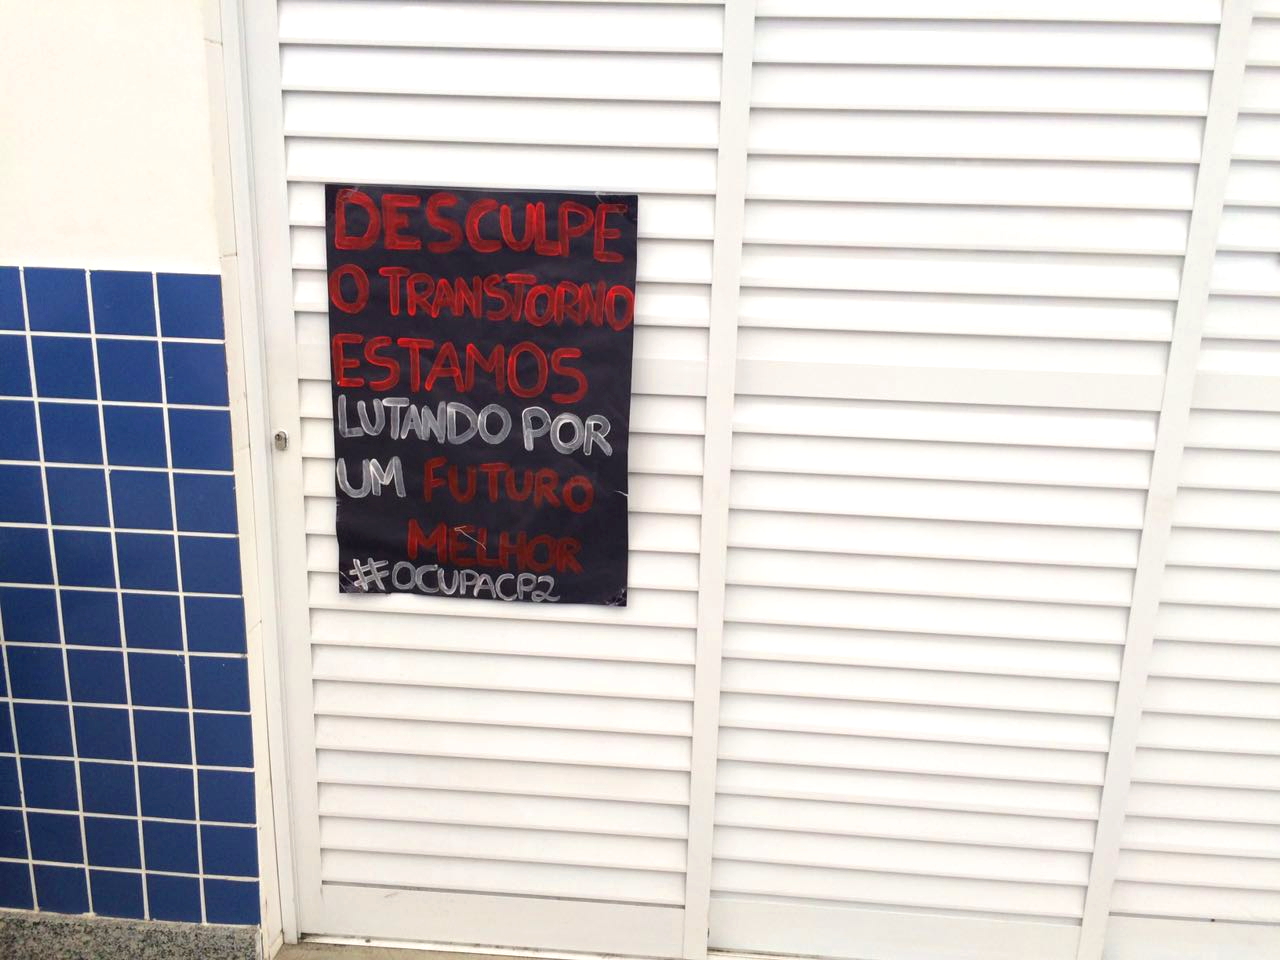 DESCULPE
O TRANSTORNO
ESTAMOS
LUTANDO POR
UM FUTURO
MELHOR
#OCUPACP2